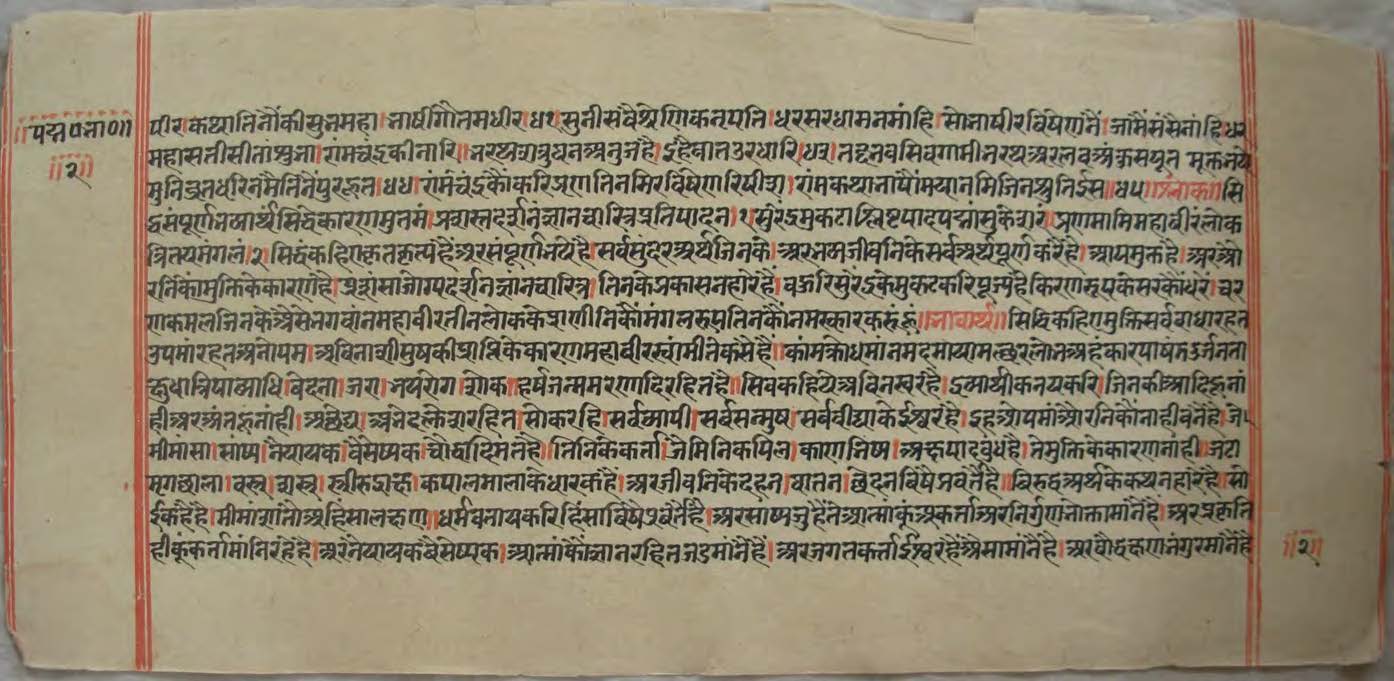 पद्म०पु०भा०॥
॥२॥
धीर। कथा तिनौंकी सुन महा। भाषी गौतम धीर। ४१। सुनी सबै श्रेणिक नृपति। धर सरधा मन मांहि। सो भाषी रविषेणनैं। जामैं संसै नांहि। ४२
महासती सीता सुभा। रामचंद्रकी नारि। भरथ शत्रुघन अनुज है। इहै बात उर धारि। ४३। तद्भव सिवगामी भरथ अर लव अंकुस पूत मुक्त भये
मुनि व्रत धरि नमै तिनैं पुरहूत। ४४। रामचंद्रकौं करि प्रणाम नमि रविषेण रिषीश। रामकथा भाषौं यथा नमि जिन श्रुति मुनि ईस। ४५॥ श्लोक॥ सि
द्धं संपूर्णभव्यार्थं सिद्धेः कारणमुत्तमं। प्रशस्तदर्शनज्ञानचारित्रप्रतिपादनं। १। सुरेंद्रमुकटाश्लिष्टपादपद्मांसुकेशरं। प्रणमामि महावीरं लोक
त्रितयमंगलं। २। सिद्ध कहिए कृतकृत्य है अर संपूर्ण भये है सर्व सुंदर अर्थ जिनके। अर भव्य जीवनिके सर्व अर्थ पूर्ण करै है। आप मुक्त है। अर औ
रनिकौं मुक्तिके कारण है। प्रशंसा जोग्य दर्शन ज्ञान चारित्र। तिनके प्रकासनहारे हैं। बहुरि सुरेंद्रके मुकट करि पूज्य है किरणरूप केसरकौं धरैं। चर
णकमल जिनके ऐसे भगवान महावीर तीन लोकके प्राणीनिकौं मंगलरूप तिनकौं नमस्कार करूं हूं॥ भावार्थ॥ सिद्धि कहिए मुक्ति सर्व बाधारहत
उपमारहत अनोपम। अविनाशी सुषकी प्राप्तिके कारण महावीर स्वांमी। ते कैसे हैं। काम क्रोध मान मद माया मत्छर लोभ अहंकार पाषंड दुर्जनता
क्षुधा त्रिषा व्याधि। वेदना। जरा। भय रोग। शोक। हर्ष जन्म मरणादि रहित है। सिव कहिये अविनस्वर है। द्रव्यार्थीक नय करि। जिनकी आदि हू नां
ही अर अंत हू नांही। अछेद्य। अभेद क्लेश रहित। सोक रहि। सर्वव्यापी। सर्वसन्मुष। सर्व वीद्याके ईश्वर है। इह उपमां औरनिकौं नाही बनै है। जे।
मीमांसा। सांष्य। नैयायक। वैसेष्यक। बौद्धादि मत है। तिनिके कर्त्ता। जैमिनि कपिल। काणभिष्य। अक्षपाद बुध है। ते मुक्तिके कारण नांही। जटा
मृगछाला। वस्त्र। शस्त्र। स्त्री रुद्राक्ष। कपालमालाके धारक है। अर जीवनिके दहन। घातन। छेदन विषै प्रवर्त्तै है। विरुद्ध अर्थके कथनहारे है। मी
ईक है है। मीमांशा तो अहिंसालक्षण। धर्म बताय करि हिंसा विषै प्रवर्त्तै है। अर सांष्य जु है ते आत्मांकूं अकर्त्ता अर निर्गुण भोक्ता मांनै है। अर प्रकृति
हीकूं कर्त्ता मांनि रहे है। अर नैयायक वैसेष्यक। आत्मांकौं ज्ञानरहित जड मांनै है। अर जगतकर्त्ता ईश्वर है ऐसा मांनै है। अर बौद्ध क्षणभंगुर मांनै है
॥२॥